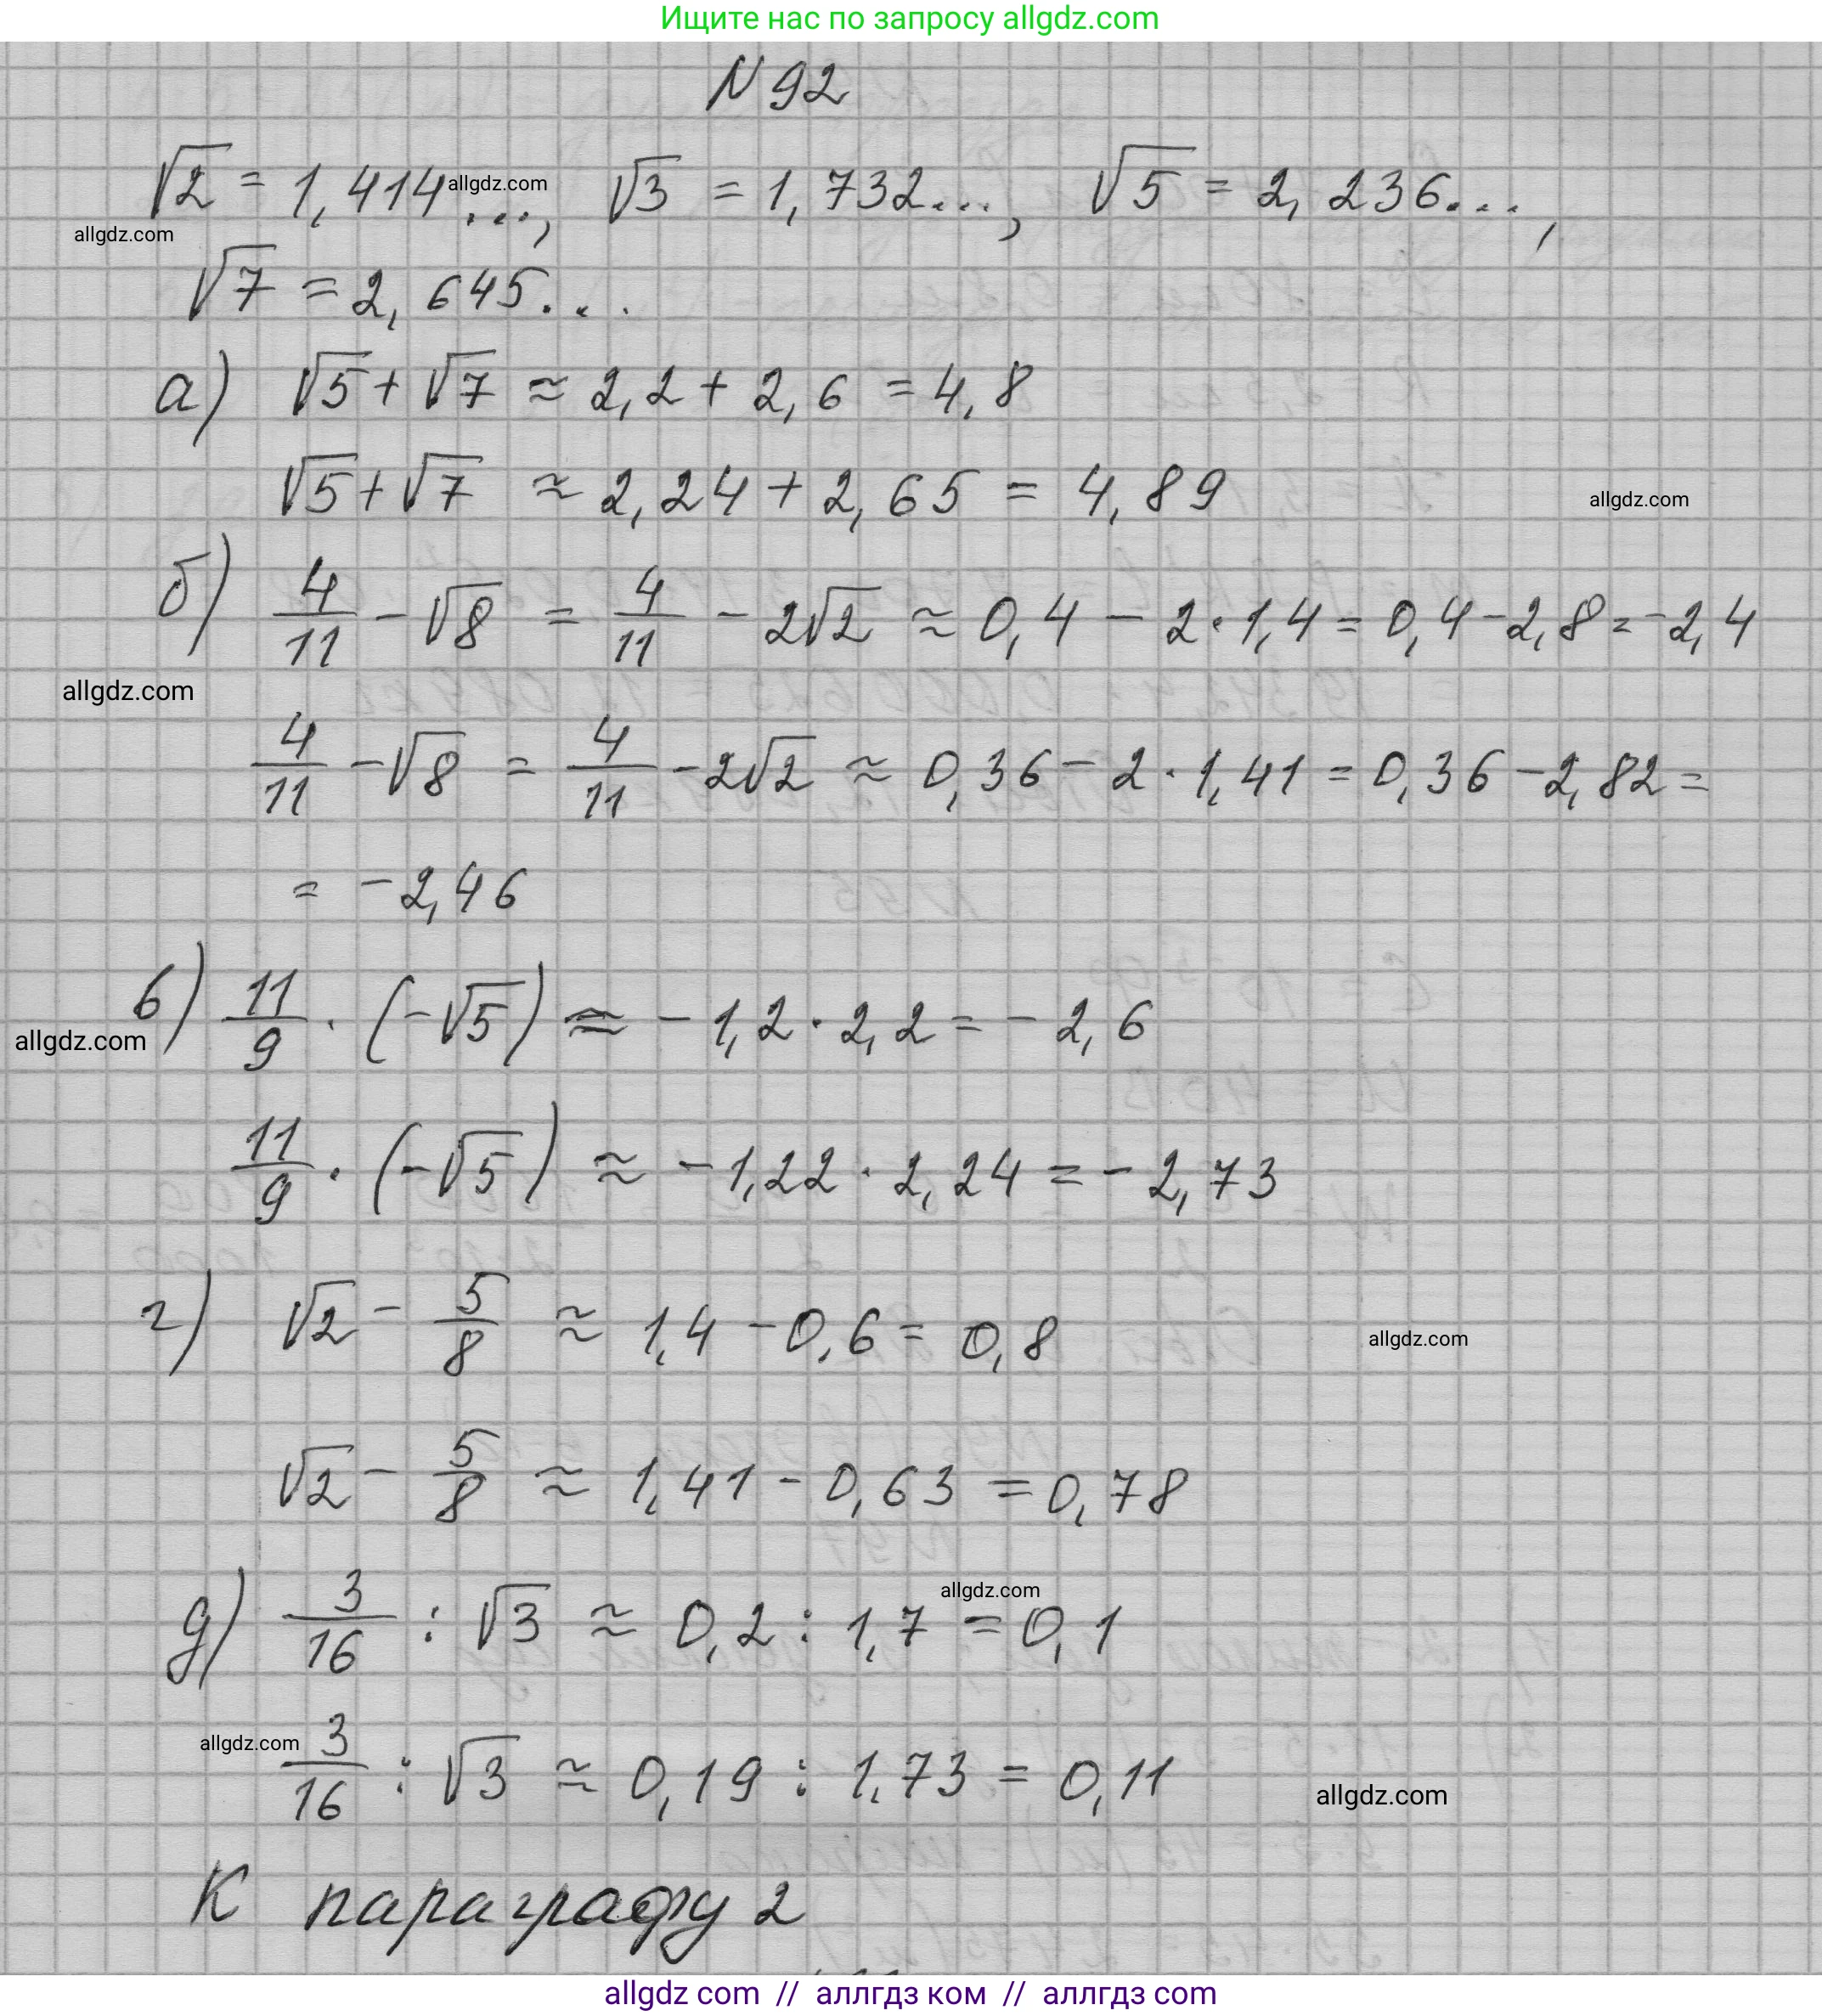 Ищите нас по запросу allgdz.com
N 92
√2 = 1,414..., √3 = 1,732..., √5 = 2,236...,
allgdz.com
allgdz.com
√7 = 2,645...
а) √5 + √7 ≈ 2,2 + 2,6 = 4,8
√5 + √7 ≈ 2,24 + 2,65 = 4,89
allgdz.com
б) 4/11 - √8 = 4/11 - 2√2 ≈ 0,4 - 2·1,4 = 0,4 - 2,8 = -2,4
allgdz.com
4/11 - √8 = 4/11 - 2√2 ≈ 0,36 - 2·1,41 = 0,36 - 2,82 =
= -2,46
в) 11/9 · (-√5) ≈ -1,2 · 2,2 = -2,6
allgdz.com
11/9 · (-√5) ≈ -1,22 · 2,24 = -2,73
г) √2 - 5/8 ≈ 1,4 - 0,6 = 0,8
allgdz.com
√2 - 5/8 ≈ 1,41 - 0,63 = 0,78
allgdz.com
д) 3/16 : √3 ≈ 0,2 : 1,7 = 0,1
allgdz.com
3/16 : √3 ≈ 0,19 : 1,73 = 0,11
allgdz.com
К параграфу 2
allgdz com // аллгдз ком // аллгдз com